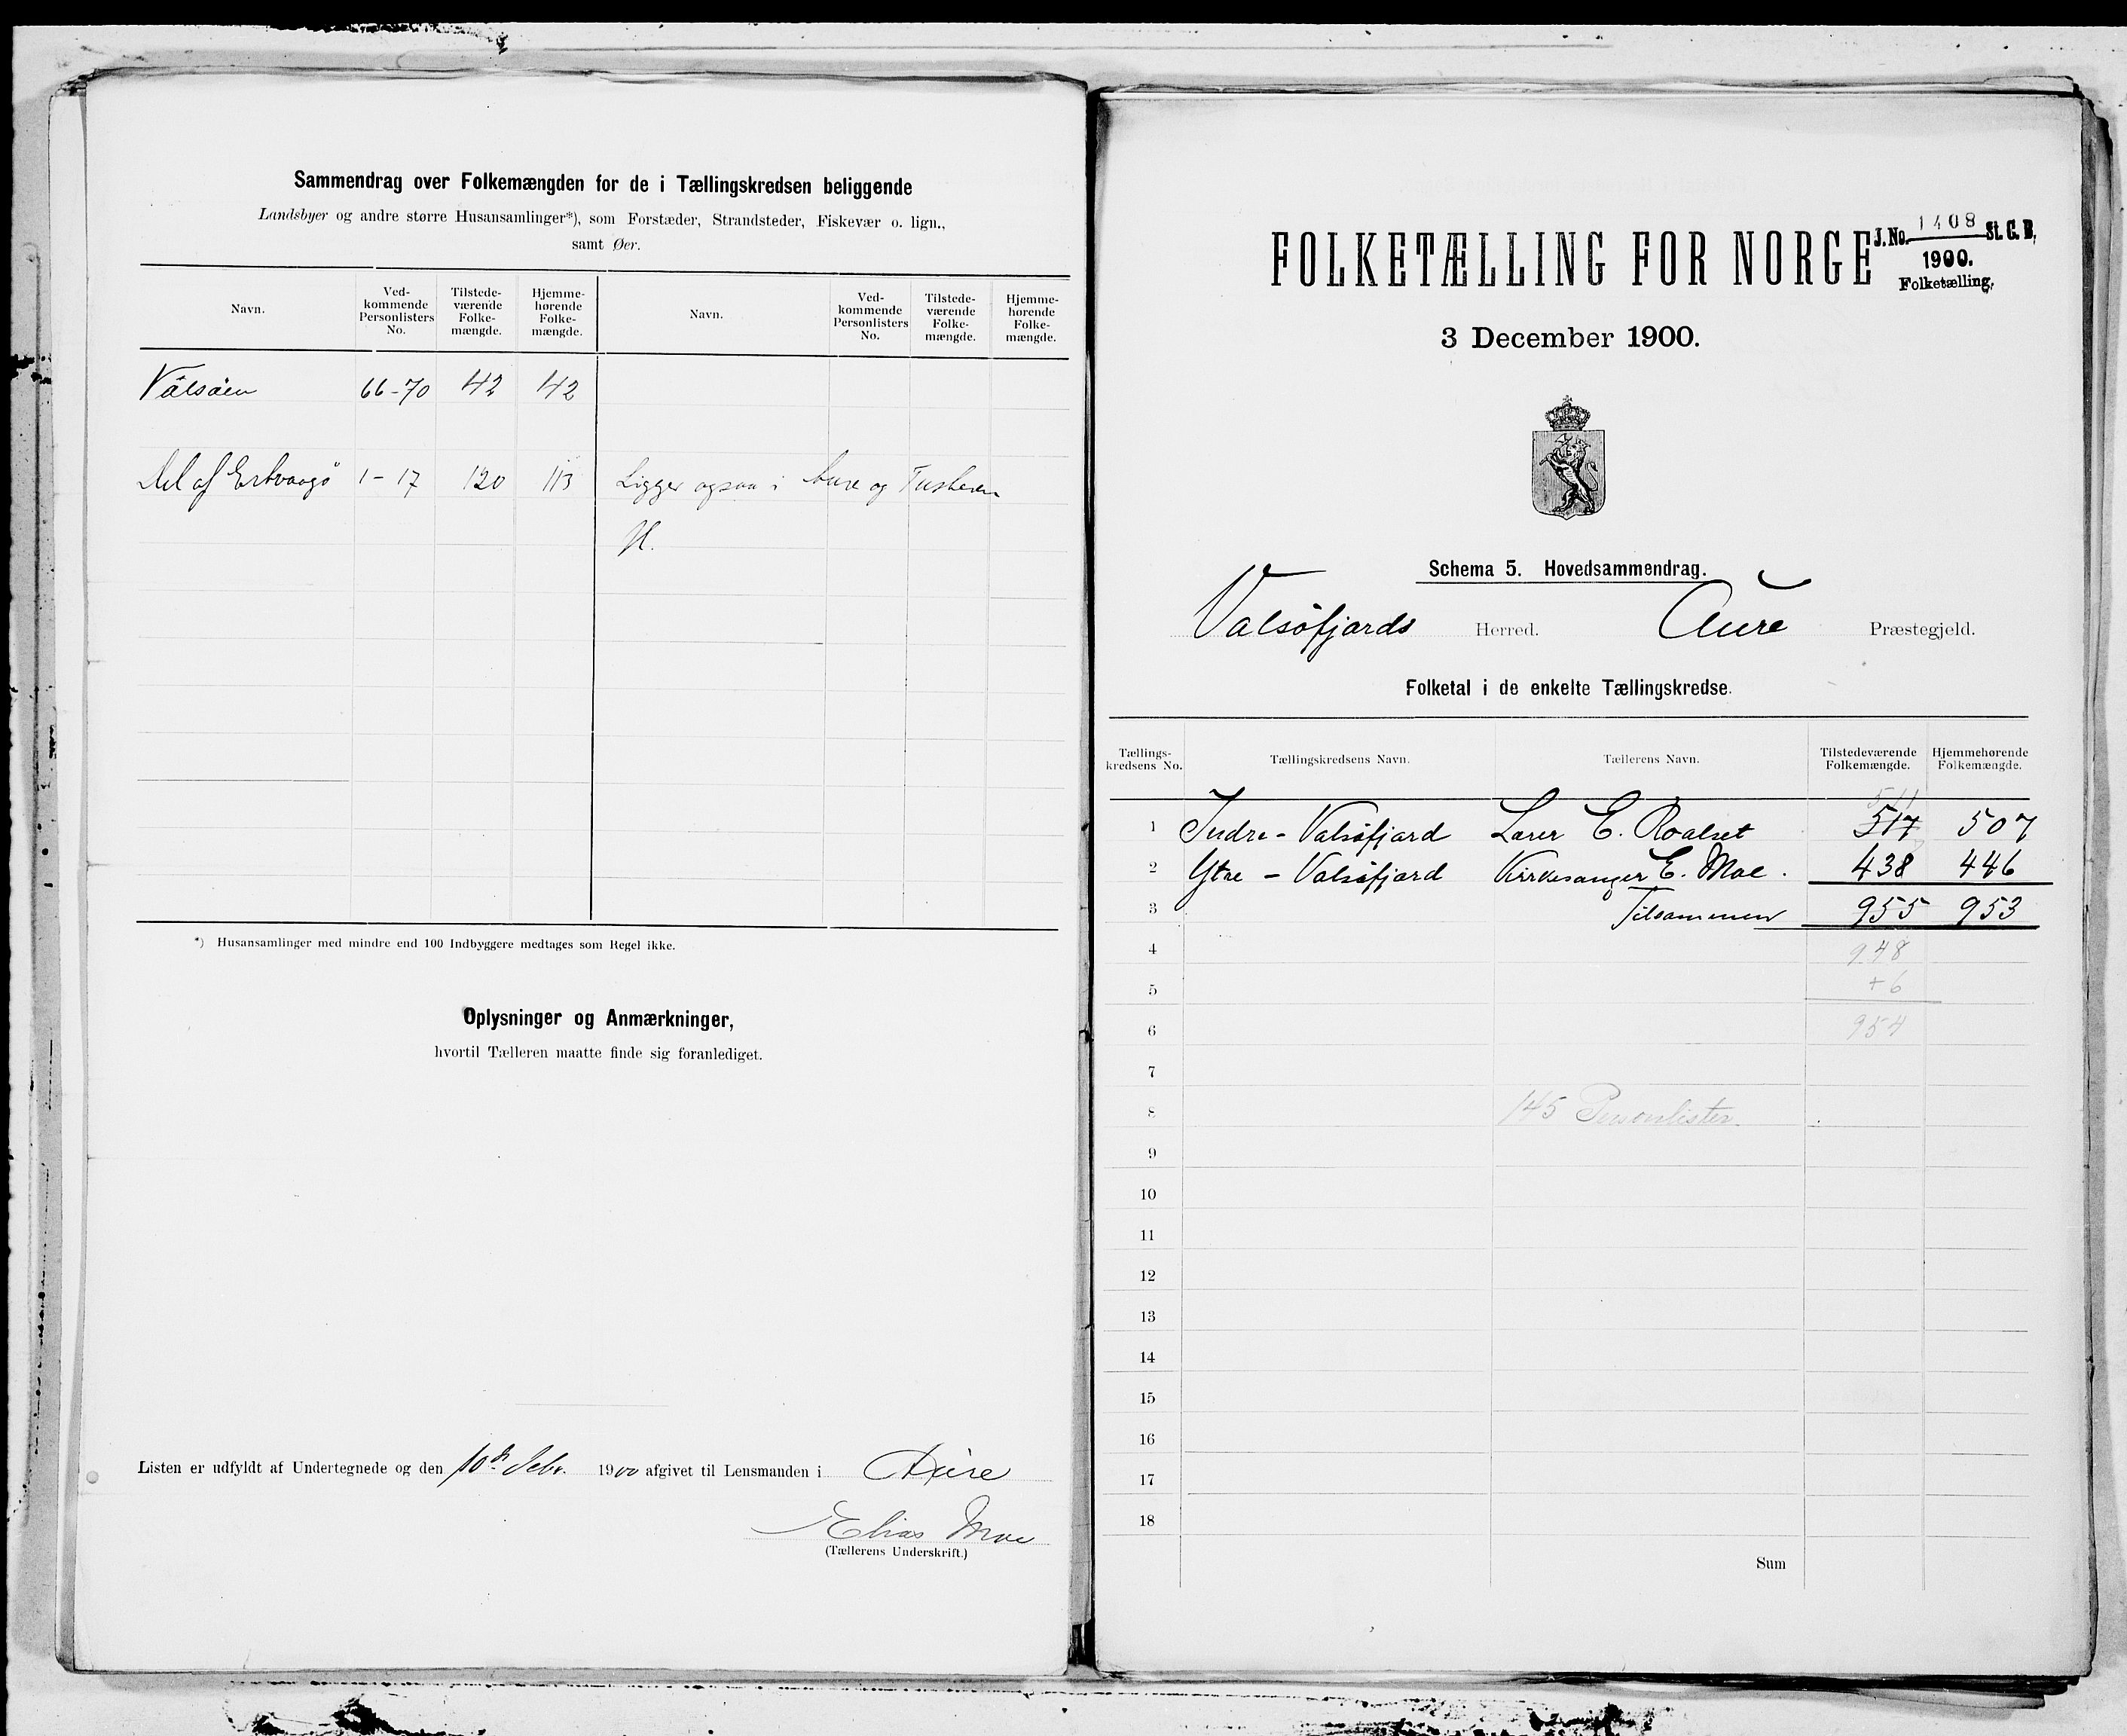 Sammendrag over Folkemængden for de i Tællingskredsen beliggende
Landsbyer og andre større Husansamlinger*), som Forstæder, Strandsteder, Fiskevær o. lign.,
samt Øer.
Navn. Ved-kommende Personlisters No. Tilstede-værende Folke-mængde. Hjemme-hørende Folke-mængde. Navn. Ved-kommende Personlisters No. Tilstede-værende Folke-mængde. Hjemme-hørende Folke-mængde.
Valsøen 66-70 42 42
Del af Ertvaagø 1-17 120 113 Ligger ogsaa i Aure og Tusteren
H.
*) Husansamlinger med mindre end 100 Indbyggere medtages som Regel ikke.
Oplysninger og Anmærkninger,
hvortil Tælleren maatte finde sig foranlediget.
Listen er udfyldt af Undertegnede og den 10de Febr. 1900 afgivet til Lensmanden i Aure
Elias Moe
(Tællerens Underskrift.)
FOLKETÆLLING FOR NORGE
J. No. 1408 St. C. B.
1900.
Folketælling.
3 December 1900.
Schema 5. Hovedsammendrag.
Valsøfjords Herred. Aure Præstegjeld.
Folketal i de enkelte Tællingskredse.
Tællings-kredsens No. Tællingskredsens Navn. Tællerens Navn. Tilstedeværende Folkemængde. Hjemmehørende Folkemængde.
511
1 Indre-Valsøfjord Lærer E. Roalset 517 507
2 Ytre-Valsøfjord Kirkesanger E. Moe. 438 446
3 Tilsammen 955 953
4 948
5 +6
6 954
7
8 145 Personlister
9
10
11
12
13
14
15
16
17
18
Sum